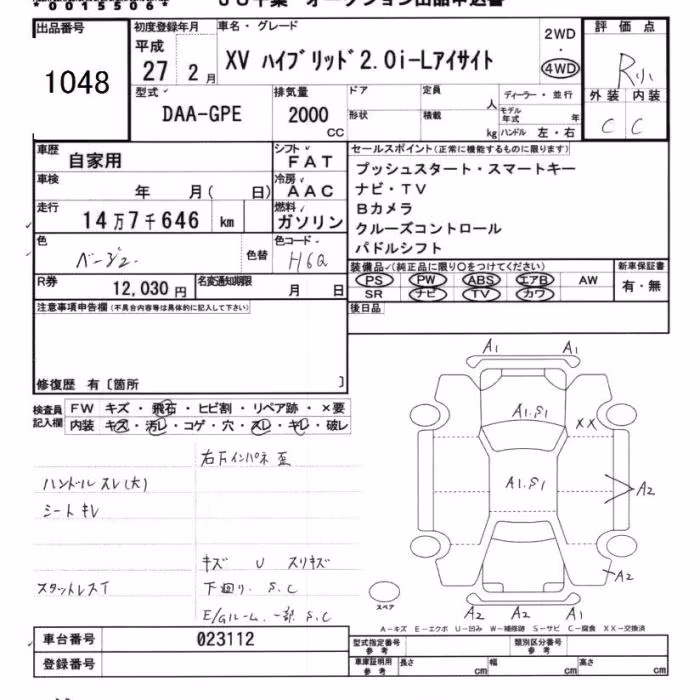 *00155064*
オークション出品申込書
出品番号
1048
初度登録年月
平成
27 2 月
車名・グレード
XV ハイブリッド2.0i-Lアイサイト
2WD
・
4WD
評価点
R
外装 内装
C C
型式
DAA-GPE
排気量
2000
CC
ドア
形状
定員
人
積載
kg
ディーラー・並行
モデル年式
年
ハンドル 左・右
車歴
自家用
シフト
FAT
車検
年 月( 日)
冷房
AAC
走行
14万7千646 km
燃料
ガソリン
色
ベージュ
色替
色コード
H6Q
R券
12,030 円
名変通知期限
月 日
セールスポイント(正常に機能するものに限ります)
プッシュスタート・スマートキー
ナビ・TV
Bカメラ
クルーズコントロール
パドルシフト
装備品(純正品に限り○をつけてください)
PS PW ABS エアB AW
SR ナビ TV カワ
新車保証書
有・無
注意事項申告欄(不具合内容等は具体的に記入して下さい)
後日品
修復歴 有〔箇所 〕
検査員
記入欄
FW キズ・飛石・ヒビ割・リペア跡・×要
内装 キズ・汚レ・コゲ・穴・スレ・キレ・破レ
右Fインパネ歪
ハンドルスレ(大)
シートキレ
キズ U スリキズ
スタットレスT
下廻リ、S、C
E/Gルーム、一部S.C
A1 A1
A1.S1
XX
A1.S1
A2
A2
スペア
A2 A2 A1
A-キズ E-エクボ U-凹み W-補修跡 S-サビ C-腐食 XX-交換済
車台番号
023112
登録番号
型式指定番号
参考
類別区分番号
参考
車庫証明用
参考
長さ
cm
幅
cm
高さ
cm